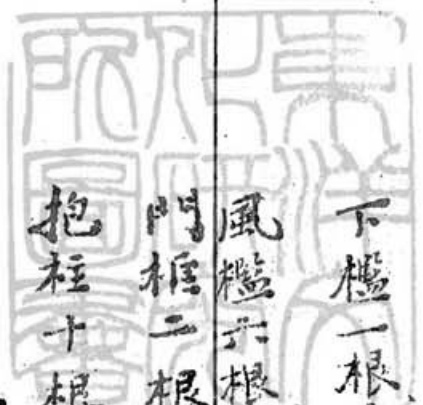 下檻一根
風檻六根
門框二根
抱柱十根